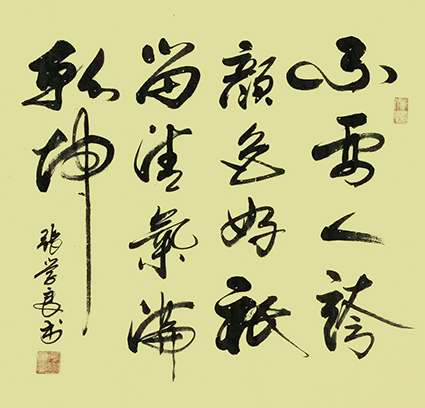 不要人誇
顏色好祇
留清氣滿
乾坤
張学良书